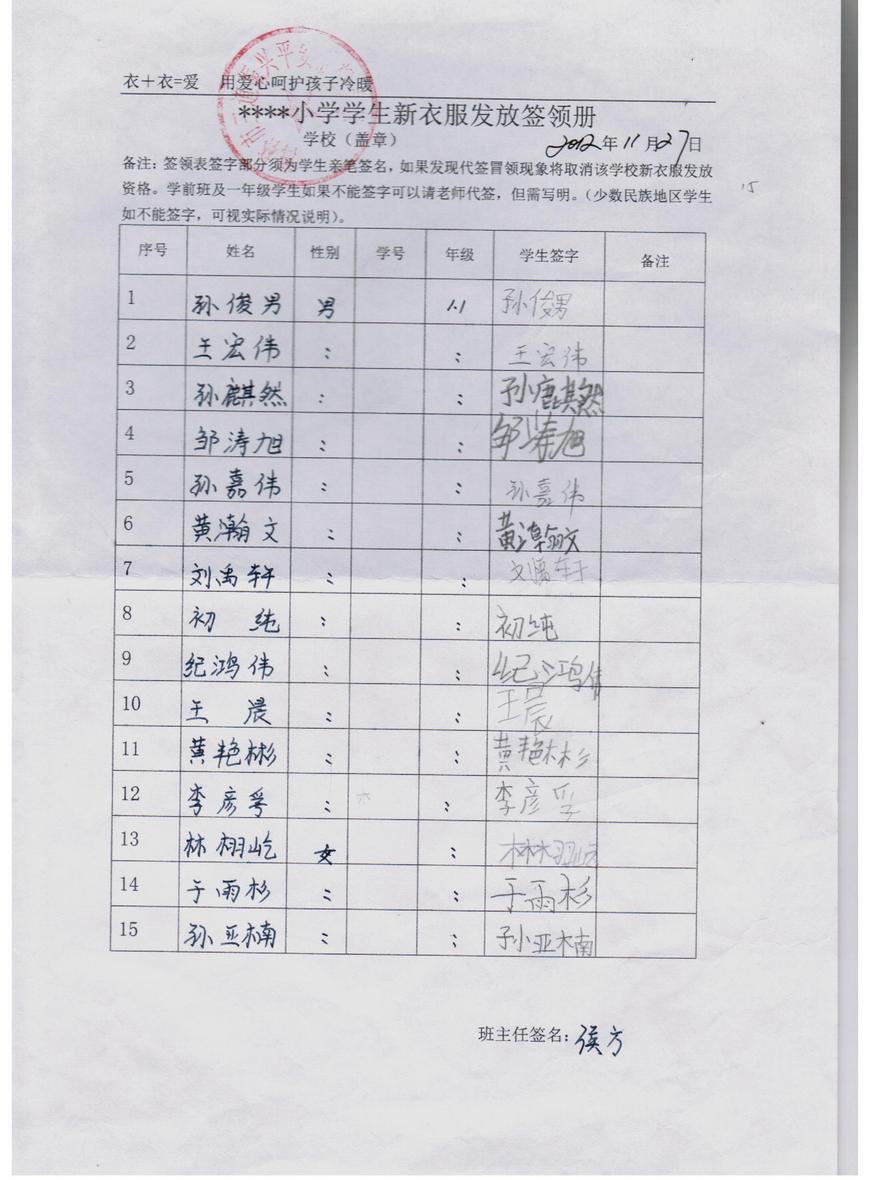 衣+衣=爱 用爱心呵护孩子冷暖
****小学学生新衣服发放签领册
学校（盖章） 2012年11月27日
备注：签领表签字部分须为学生亲笔签名，如果发现代签冒领现象将取消该学校新衣服发放
资格。学前班及一年级学生如果不能签字可以请老师代签，但需写明。（少数民族地区学生
如不能签字，可视实际情况说明）。
15
序号 姓名 性别 学号 年级 学生签字 备注
1 孙俊男 男 1.1 孙俊男
2 王宏伟 : : 王宏伟
3 孙麒然 : : 孙麒然
4 邹涛旭 : : 邹涛旭
5 孙嘉伟 : : 孙嘉伟
6 黄瀚文 : : 黄瀚文
7 刘禹轩 : :
8 初纯 : : 初纯
9 纪鸿伟 : : 纪鸿伟
10 王晨 : : 王晨
11 黄艳彬 : : 黄艳彬
12 李彦 : : 李彦
13 林栩屹 女 : 林栩屹
14 于雨杉 : : 于雨杉
15 孙亚楠 : : 孙亚楠
班主任签名：侯方